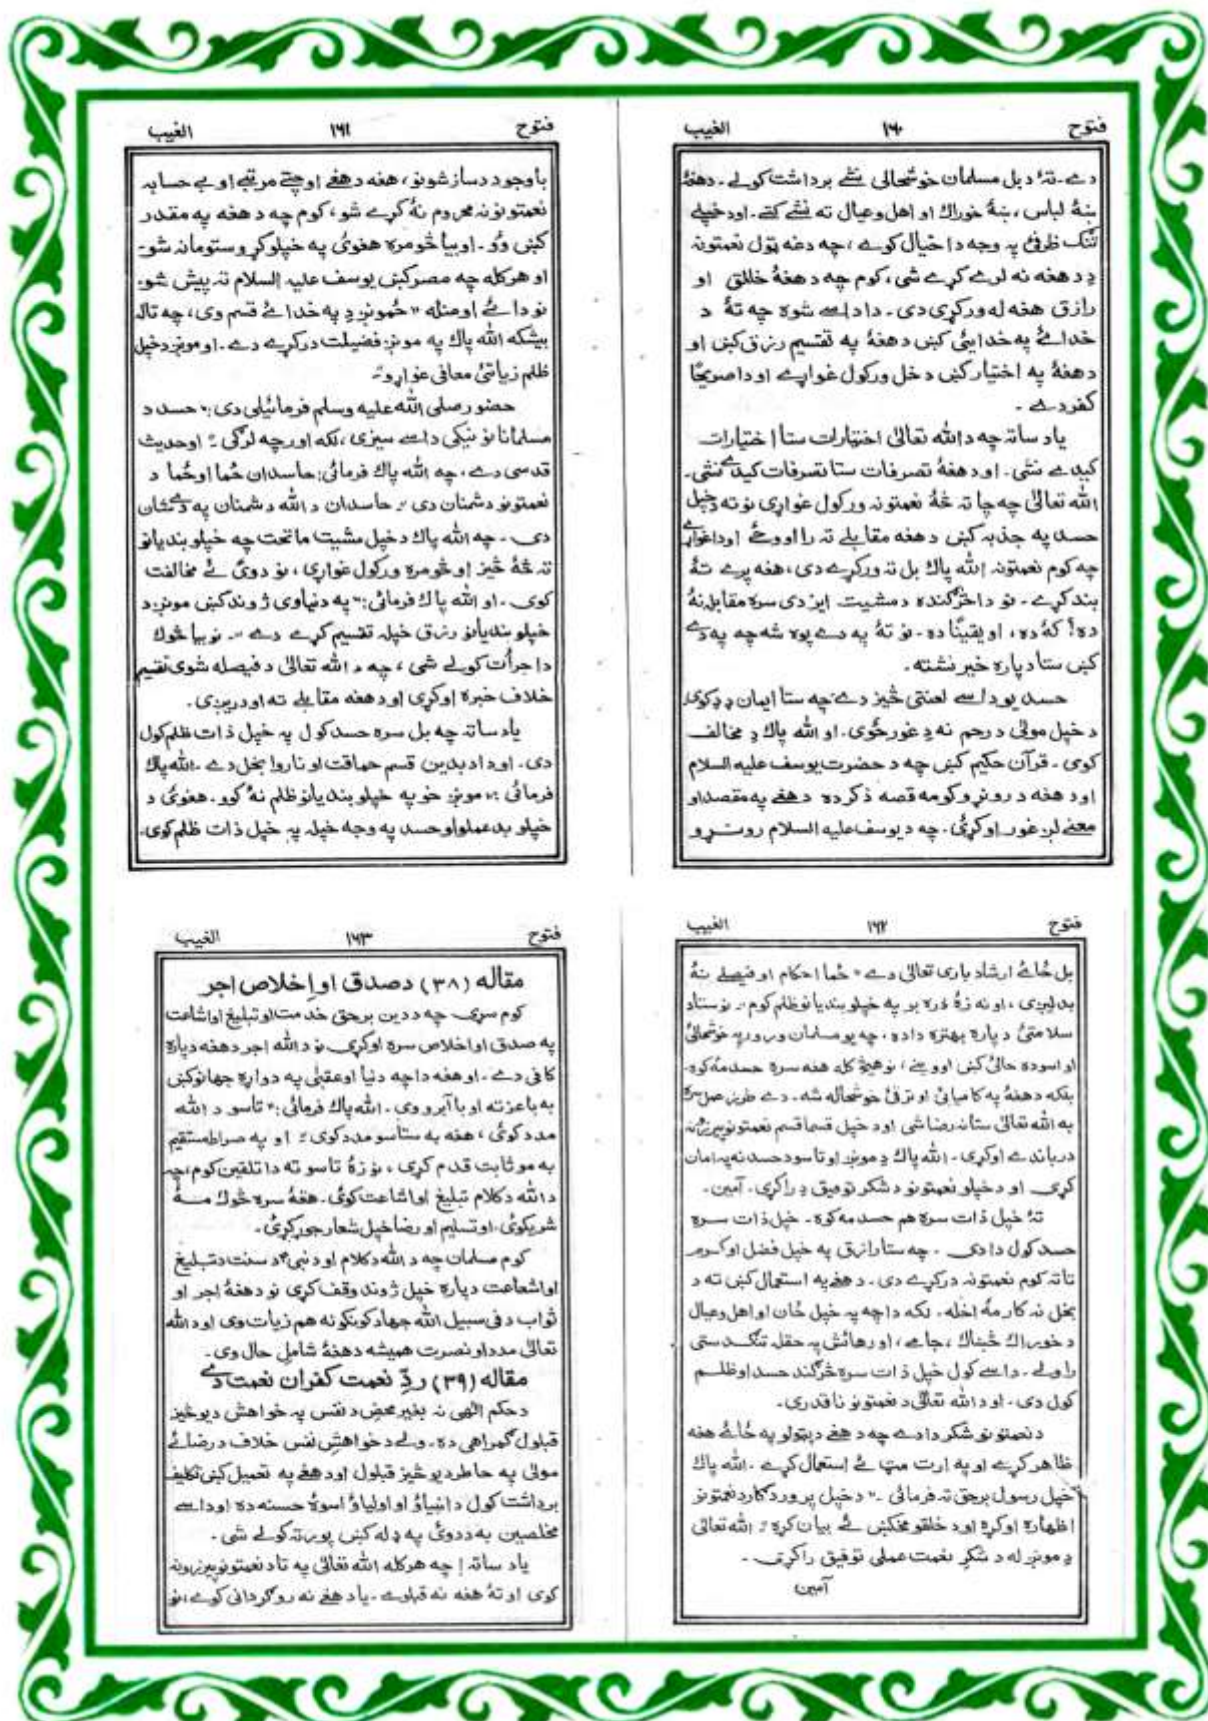 فتوح ۱۶۰ الغیب
دے۔ تۀ د بل مسلمان خوشحالی نشے برداشت کولے۔ دهغۀ
ښۀ لباس، ښۀ خوراك او اهل وعیال ته نشے کتے۔ اود خپلے
تنگ ظرفئ په وجه دا خیال کوے، چه دغه ټول نعمتونه
دِ د هغه نه لرے کړے شی، کوم چه د هغۀ خالق او
رازق هغه له ورکړی دی۔ دا داسے شوه چه تۀ د
خدائے په خدایئی کښ دهغۀ په تقسیم رزق کښ او
دهغۀ په اختیار کښ دخل ورکول غواړے او دا صریحًا
کفر دے۔
یاد ساته چه د الله تعالیٰ اختیارات ستا اختیارات
کیدے نشی۔ او دهغۀ تصرفات ستا تصرفات کیدے نشی۔
الله تعالیٰ چه چا ته څۀ نعمتونه ورکول غواړی نو ته دخپل
حسد په جذبه کښ دهغه مقابلے ته را اوځے او دا غواړے
چه کوم نعمتونه الله پاك بل ته ورکړے دی، هغه پرے تۀ
بند کړے۔ نو دا څرګنده د مشیت ایزدی سره مقابله نۀ
ده؟ کۀ ده، او یقینًا ده۔ نو تۀ په دے پوه شه چه په دے
کښ ستا دپاره خیر نشته۔
حسد یو داسے لعنتی څیز دے چه ستا ایمان دِ کوی
د خپل مولیٰ د رحم نه دِ غورځوی۔ او الله پاك دِ مخالف
کوی۔ قرآن حکیم کښ چه د حضرت یوسف علیه السلام
اود هغه د رونړو کومه قصه ذکر ده دهغے په مقصد او
معنے لږ غور اوکړئ۔ چه د یوسف علیه السلام رونړو
فتوح ۱۶۱ الغیب
باوجود د سازشونو، هغه دهغے اوچتے مرتبے او بے حسابه
نعمتونو نه محروم نۀ کړے شو، کوم چه د هغه په مقدر
کښ وُو۔ او بیا څومره هغوئ په خپلو کړو ستومانه شو۔
او هر کله چه مصر کښ یوسف علیه السلام ته پیش شو۔
نو دائے اومنله " ځمونږ دِ په خدائے قسم وی، چه تاله
بیشکه الله پاك په مونږ فضیلت درکړے دے۔ او مونږ دخپل
ظلم زیاتئ معافی غواړو"۔
حضور صلی الله علیه وسلم فرمائیلی دی:" حسد د
مسلمانانو نیکی داسے سیزی، لکه اور چه لرګی"۔ او حدیث
قدسی دے، چه الله پاك فرمائی: حاسدان ځما او ځما د
نعمتونو دشمنان دی"۔ حاسدان د الله دشمنان په دے شان
دی۔ چه الله پاك د خپل مشیت ماتحت چه خپلو بندیانو
ته څۀ څیز او څومره ورکول غواړی، نو دوئ ئے مخالفت
کوی۔ او الله پاك فرمائی:" په دنیاوی ژوند کښ مونږ د
خپلو بندیانو رزق خپله تقسیم کړے دے"۔ نو بیا څوك
دا جرأت کولے شی، چه د الله تعالیٰ د فیصله شوی تقسیم
خلاف خبره اوکړی اود هغه مقابلے ته اودریږی۔
یاد ساته چه بل سره حسد کول په خپل ذات ظلم کول
دی۔ او دا د بدین قسم حماقت او ناروا بخل دے۔ الله پاك
فرمائی:" مونږ خو په خپلو بندیانو ظلم نۀ کوو۔ هغوئ د
خپلو بد عملو او حسد په وجه خپله په خپل ذات ظلم کوی۔
فتوح ۱۶۲ الغیب
بل ځائے ارشاد باری تعالیٰ دے " ځما احکام او فیصلے نۀ
بدلیږی، او نه زۀ ذره بر په خپلو بندیانو ظلم کوم"۔ نو ستا د
سلامتئ دپاره بهتره داده، چه یو مسلمان ورور په خوشحالئ
او اسوده حالئ کښ اووینے، نو هیڅ کله هغه سره حسد مه کوه۔
بلکه دهغۀ په کامیابئ او ترقئ خوشحاله شه۔ دے طرز عمل سره
به الله تعالیٰ ستا نه رضا شی اود خپل قسما قسم نعمتونو پیرزونه
درباندے اوکړی۔ الله پاك دِ مونږ او تاسو د حسد نه په امان
کړی او د خپلو نعمتونو د شکر توفیق دِ راکړی۔ آمین۔
تۀ خپل ذات سره هم حسد مه کوه۔ خپل ذات سره
حسد کول دا دی۔ چه ستا رازق په خپل فضل او کرم
تا ته کوم نعمتونه درکړے دی۔ دهغے په استعمال کښ ته د
بخل نه کار مۀ اخله۔ لکه دا چه په خپل ځان او اهل وعیال
د خوراك څښاك، جامے، او رهائش په حقله تنگدستی
راولے۔ داسے کول خپل ذات سره څرګند حسد او ظلم
کول دی۔ او د الله تعالیٰ د نعمتونو ناقدری۔
د نعمتونو شکر دا دے چه دهغے د ښودلو په ځائے هغه
ظاهر کړے او په ارت مټ ئے استعمال کړے۔ الله پاك
خپل رسول برحق ته فرمائی۔" د خپل پروردگار د نعمتونو
اظهاره اوکړه اود خلقو مخکښ ئے بیان کړه"۔ الله تعالیٰ
دِ مونږ له د شکرِ نعمت عملی توفیق راکړی۔
آمین
فتوح ۱۶۳ الغیب
مقاله (۳۸) د صدق او اِخلاص اجر
کوم سړی چه د دین برحق خدمت او تبلیغ او اشاعت
په صدق او اخلاص سره اوکړی نو د الله اجر دهغه دپاره
کافی دے۔ او هغه دا چه دنیا او عقبیٰ په دواړه جهانو کښ
به با عزته او با آبرو وی۔ الله پاك فرمائی:" تاسو د الله
مدد کوئ، هغه به ستاسو مدد کوی"۔ او په صراط مستقیم
به مو ثابت قدم کړی، نو زۀ تاسو ته دا تلقین کوم، چه
د الله د کلام تبلیغ او اشاعت کوئ۔ هغۀ سره څوك مۀ
شریکوئ، او تسلیم او رضا خپل شعار جوړ کړئ۔
کوم مسلمان چه د الله د کلام او د نبیؐ د سنت د تبلیغ
او اشاعت دپاره خپل ژوند وقف کړی نو دهغۀ اجر او
ثواب د فی سبیل الله جهاد کونکو نه هم زیات وی او د الله
تعالیٰ مدد او نصرت همیشه دهغۀ شامل حال وی۔
مقاله (۳۹) ردِّ نعمت کفران نعمت دے
د حکم الٰهی نه بغیر محض د نفس په خواهش د یو څیز
قبلول گمراهی ده۔ ولے د خواهشِ نفس خلاف د رضائے
مولیٰ په خاطر د یو څیز قبلول اود هغے په تعمیل کښ تکلیف
برداشت کول د انبیاؤ او اولیاؤ اسوۀ حسنه ده او داسے
مخلصین به د دوئ په ډله کښ پورته کولے شی۔
یاد ساته! چه هر کله الله تعالیٰ په تا د نعمتونو پیرزونه
کوی او تۀ هغه نه قبلوے۔ یا دهغے نه روگردانی کوے، نو